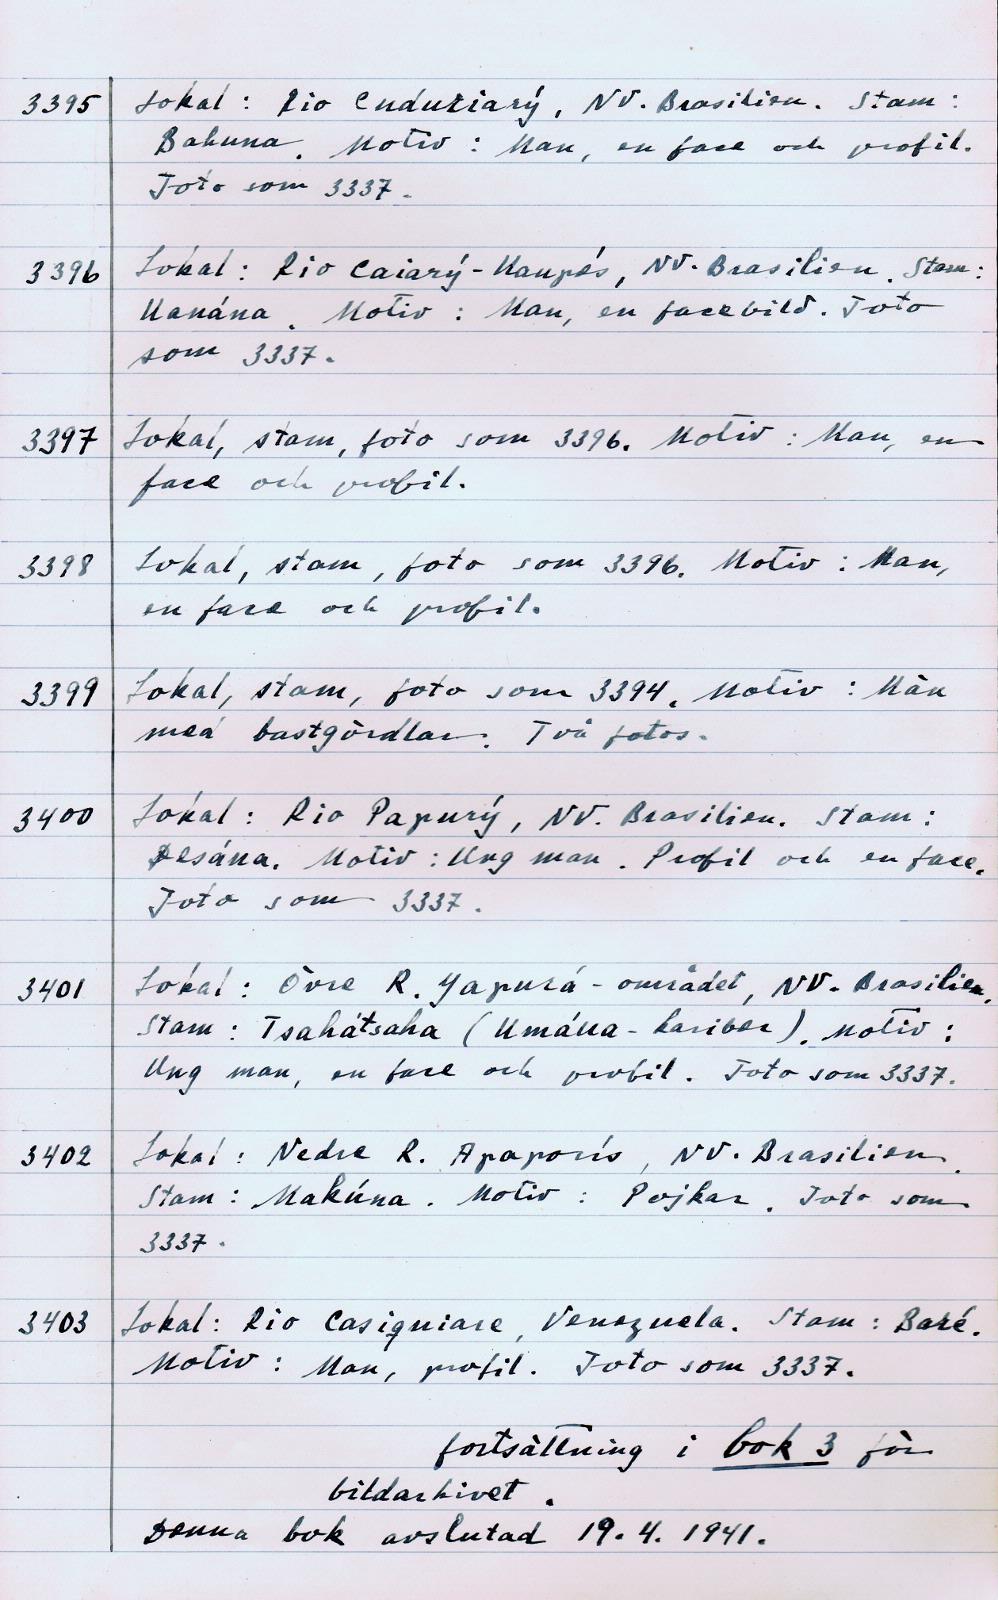 3395 Lokal: Rio Cuduriarý, NV. Brasilien. Stam:
Bahuna. Motiv: Man, en face och profil.
Foto som 3337.
3396 Lokal: Rio Caiarý-Uaupés, NV. Brasilien. Stam:
Uanána. Motiv: Man, en facebild. Foto
som 3337.
3397 Lokal, stam, foto som 3396. Motiv: Man, en
face och profil.
3398 Lokal, stam, foto som 3396. Motiv: Man,
en face och profil.
3399 Lokal, stam, foto som 3394. Motiv: Män
med bastgördlar. Två fotos.
3400 Lokal: Rio Papurý, NV. Brasilien. Stam:
Desána. Motiv: Ung man. Profil och en face.
Foto som 3337.
3401 Lokal: Övre R. Yapurá-området, NV. Brasilien.
Stam: Tsahátsaha (Umáua-kariber). Motiv:
Ung man, en face och profil. Foto som 3337.
3402 Lokal: Nedre R. Apaporís, NV. Brasilien.
Stam: Makúna. Motiv: Pojkar. Foto som
3337.
3403 Lokal: Rio Casiquiare, Venezuela. Stam: Baré.
Motiv: Man, profil. Foto som 3337.
fortsättning i bok 3 för
bildarkivet.
Denna bok avslutad 19.4.1941.